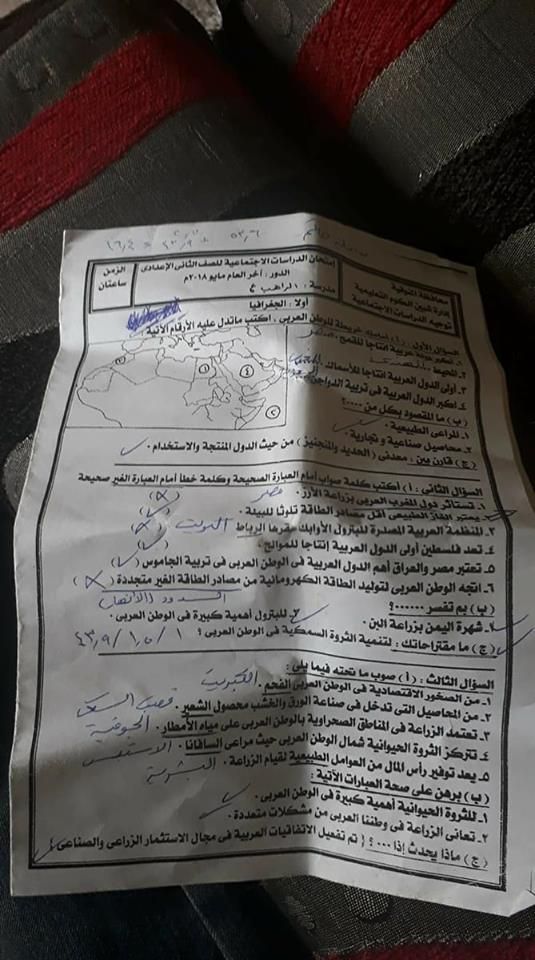 محافظة المنوفية
إدارة شبين الكوم التعليمية
توجيه الدراسات الاجتماعية
إمتحان الدراسات الاجتماعية للصف الثانى الإعدادى
الدور : آخر العام مايو ٢٠١٨م
مدرسة : الراهب ع
الزمن
ساعتان
أولا : الجغرافيا
السؤال الأول : (أ) أمامك خريطة للوطن العربى ، اكتب ماتدل عليه الأرقام الآتية :
١. أكبر دولة عربية إنتاجا للقمح . مصر
٢. المحيط
٣. أولى الدول العربية إنتاجا للأسماك . المغرب
٤. أكبر الدول العربية فى تربية الدواجن
(ب) ما المقصود بكل من ......؟
١. المراعى الطبيعية .
٢. محاصيل صناعية و تجارية .
(ج) قارن بين : معدنى (الحديد والمنجنيز) من حيث الدول المنتجة والاستخدام .
السؤال الثانى : (أ) اكتب كلمة صواب أمام العبارة الصحيحة وكلمة خطأ أمام العبارة الغير صحيحة
١. تستأثر دول المغرب العربى بزراعة الأرز . (X) مصر
٢. يعتبر الغاز الطبيعى أقل مصادر الطاقة تلوثا للبيئة .
٣. المنظمة العربية المصدرة للبترول الأوابك مقرها الرباط (X) الكويت
٤. تعد فلسطين أولى الدول العربية إنتاجا للموالح .
٥. تعتبر مصر والعراق أهم الدول العربية فى الوطن العربى فى تربية الجاموس (✓)
٦. اتجه الوطن العربى لتوليد الطاقة الكهرومائية من مصادر الطاقة الغير متجددة (X)
(ب) بم تفسر ......؟
١. شهرة اليمن بزراعة البن . ٢. للبترول أهمية كبيرة فى الوطن العربى .
(ج) ما مقتراحاتك : لتنمية الثروة السمكية فى الوطن العربى ؟
السؤال الثالث : (أ) صوب ما تحته خط فيما يلى :
١. من الصخور الاقتصادية فى الوطن العربى الفحم . الكبريت
٢. من المحاصيل التى تدخل فى صناعة الورق والخشب محصول الشعير . قصب السكر
٣. تعتمد الزراعة فى المناطق الصحراوية بالوطن العربى على مياه الأمطار . الجوفية
٤. تتركز الثروة الحيوانية شمال الوطن العربى حيث مراعى السافانا . الاستبس
٥. يعد توفير رأس المال من العوامل الطبيعية لقيام الزراعة . البشرية
(ب) برهن على صحة العبارات الآتية :
١. للثروة الحيوانية أهمية كبيرة فى الوطن العربى .
٢. تعانى الزراعة فى وطننا العربى من مشكلات متعددة .
(ج) ماذا يحدث إذا ....؟ { تم تفعيل الاتفاقيات العربية فى مجال الاستثمار الزراعى والصناعى }